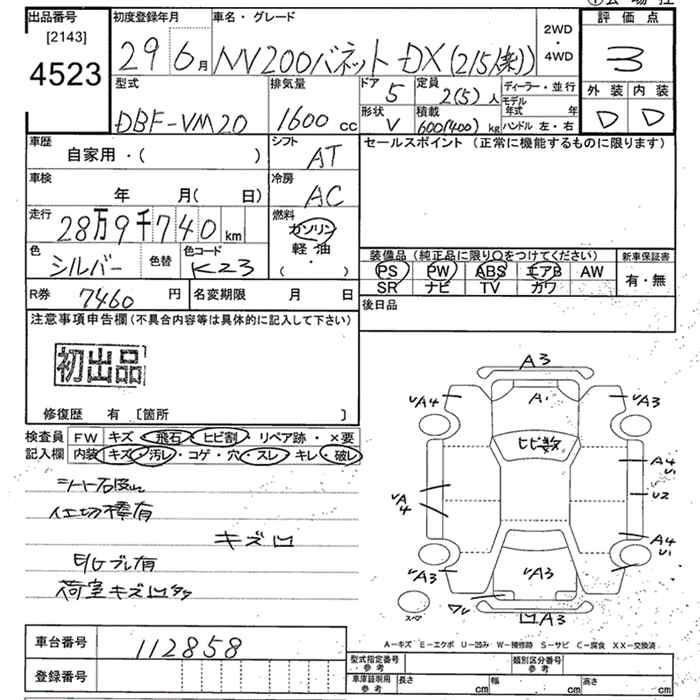 出品番号
[2143]
4523
初度登録年月
29 6月
車名・グレード
NV200バネット DX(2/5人乗)
2WD
・
4WD
評価点
3
外装 内装
D D
型式
DBF-VM20
排気量
1600 cc
ドア 5
定員 2(5)人
形状 V
積載 600(400)kg
ディーラー・並行
モデル年式 年
ハンドル 左・右
車歴
自家用・( )
シフト AT
セールスポイント(正常に機能するものに限ります)
車検
年 月( 日)
冷房 AC
走行
28万9千740km
燃料
ガソリン
軽・油
( ・ )
色 シルバー
色替
色コード K23
装備品(純正品に限り○をつけてください)
PS PW ABS エアB AW
SR ナビ TV カワ
新車保証書
有・無
R券 7460円
名変期限 月 日
後日品
注意事項申告欄(不具合内容等は具体的に記入して下さい)
初出品
修復歴 有 [箇所 ]
検査員記入欄
FW キズ・飛石・ヒビ割・リペア跡・×要
内装 キズ・汚レ・コゲ・穴・スレ・キレ・破レ
仕切棒有
キズ凹
E/Gブレ有
荷室キズ凹多
A3
A1
UA4 UA3
ヒビ数
A4
U1
U2
UA
4
A4
U1
UA3
UA3
ワレ
凹A3
スペア
A－キズ E－エクボ U－凹み W－補修跡 S－サビ C－腐食 XX－交換済
車台番号 112858
登録番号
型式指定番号
参考
類別区分番号
参考
車庫証明用
参考
長さ cm 幅 cm 高さ cm